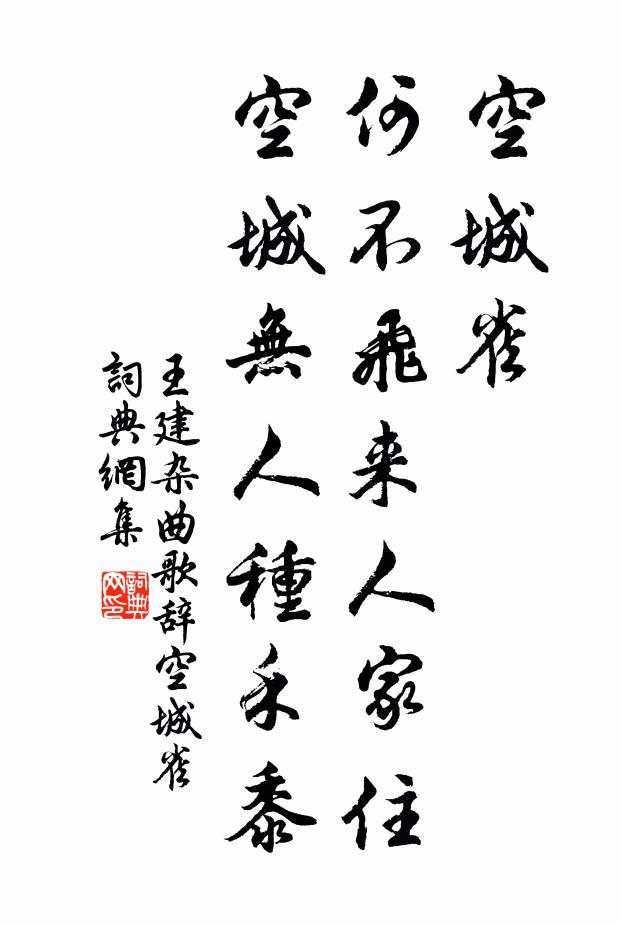 空城雀
何不飛来人家住
空城無人種禾黍
王建杂曲歌辞空城雀
詞典網集
詞典
网印